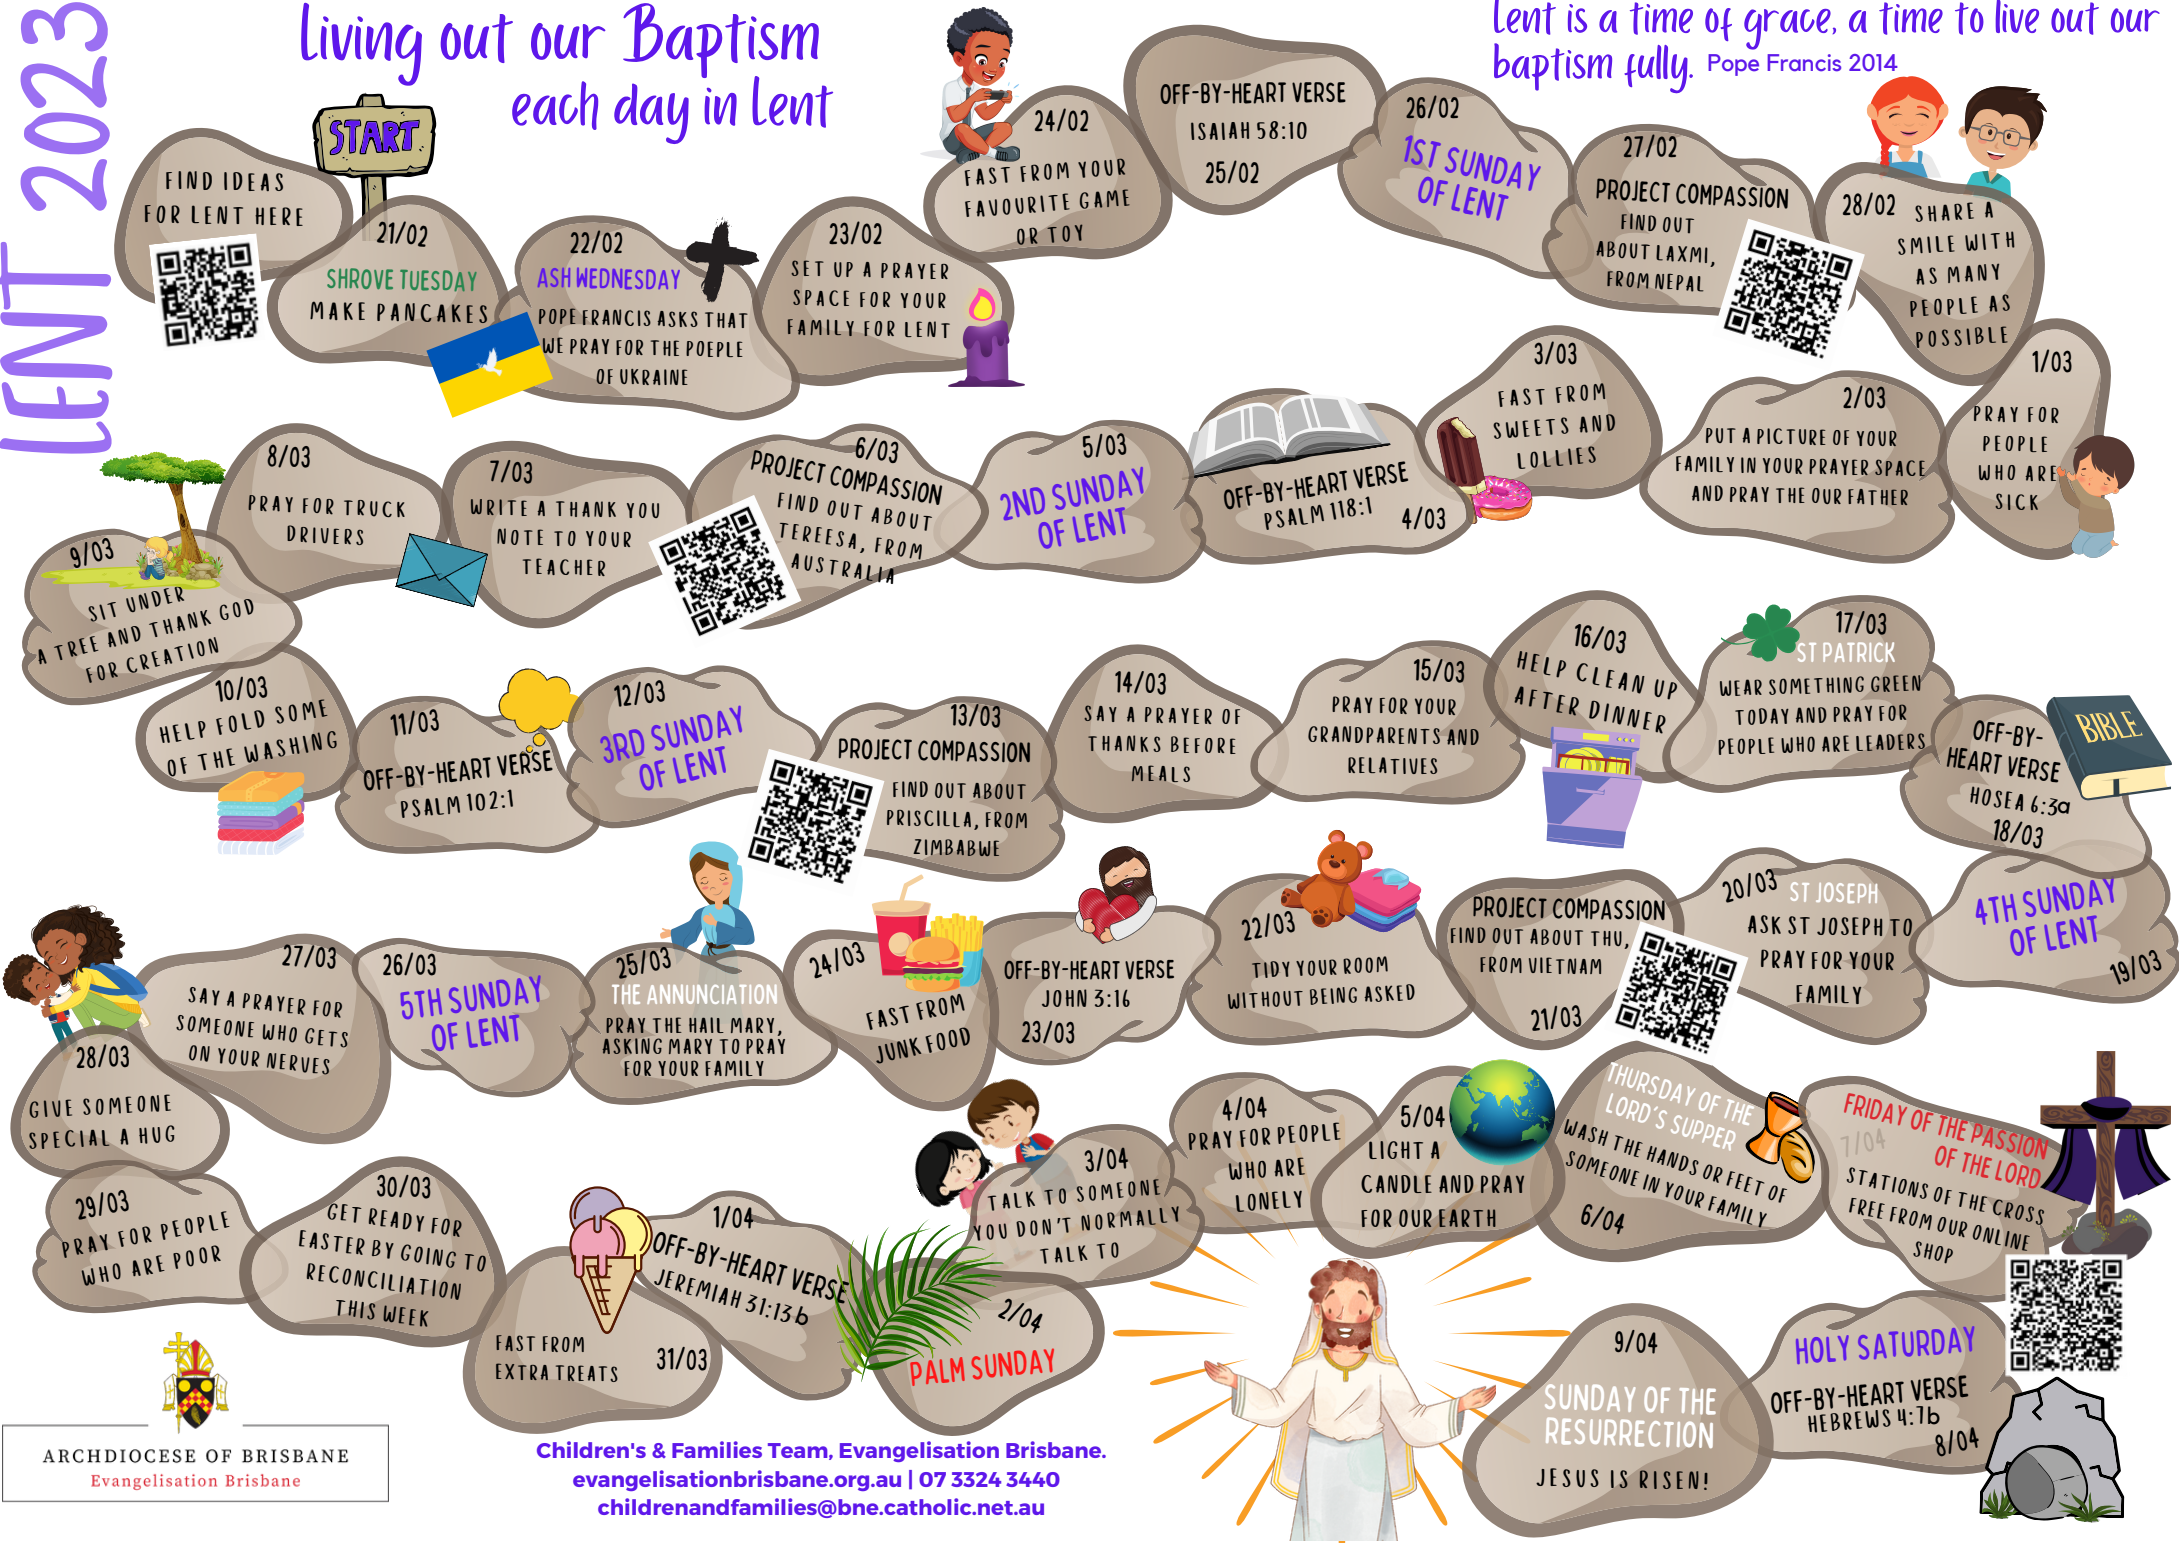 LENT 2023
Living out our Baptism
each day in Lent
Lent is a time of grace, a time to live out our
baptism fully. Pope Francis 2014
FIND IDEAS
FOR LENT HERE
START
21/02
SHROVE TUESDAY
MAKE PANCAKES
22/02
ASH WEDNESDAY
POPE FRANCIS ASKS THAT
WE PRAY FOR THE POEPLE
OF UKRAINE
23/02
SET UP A PRAYER
SPACE FOR YOUR
FAMILY FOR LENT
24/02
FAST FROM YOUR
FAVOURITE GAME
OR TOY
OFF-BY-HEART VERSE
ISAIAH 58:10
25/02
26/02
1ST SUNDAY
OF LENT
27/02
PROJECT COMPASSION
FIND OUT
ABOUT LAXMI,
FROM NEPAL
28/02
SHARE A
SMILE WITH
AS MANY
PEOPLE AS
POSSIBLE
1/03
PRAY FOR
PEOPLE
WHO ARE
SICK
2/03
PUT A PICTURE OF YOUR
FAMILY IN YOUR PRAYER SPACE
AND PRAY THE OUR FATHER
3/03
FAST FROM
SWEETS AND
LOLLIES
OFF-BY-HEART VERSE
PSALM 118:1
4/03
5/03
2ND SUNDAY
OF LENT
6/03
PROJECT COMPASSION
FIND OUT ABOUT
TEREESA, FROM
AUSTRALIA
7/03
WRITE A THANK YOU
NOTE TO YOUR
TEACHER
8/03
PRAY FOR TRUCK
DRIVERS
9/03
SIT UNDER
A TREE AND THANK GOD
FOR CREATION
10/03
HELP FOLD SOME
OF THE WASHING
11/03
OFF-BY-HEART VERSE
PSALM 102:1
12/03
3RD SUNDAY
OF LENT
13/03
PROJECT COMPASSION
FIND OUT ABOUT
PRISCILLA, FROM
ZIMBABWE
14/03
SAY A PRAYER OF
THANKS BEFORE
MEALS
15/03
PRAY FOR YOUR
GRANDPARENTS AND
RELATIVES
16/03
HELP CLEAN UP
AFTER DINNER
17/03
ST PATRICK
WEAR SOMETHING GREEN
TODAY AND PRAY FOR
PEOPLE WHO ARE LEADERS
BIBLE
OFF-BY-
HEART VERSE
HOSEA 6:3a
18/03
4TH SUNDAY
OF LENT
19/03
20/03
ST JOSEPH
ASK ST JOSEPH TO
PRAY FOR YOUR
FAMILY
PROJECT COMPASSION
FIND OUT ABOUT THU,
FROM VIETNAM
21/03
22/03
TIDY YOUR ROOM
WITHOUT BEING ASKED
OFF-BY-HEART VERSE
JOHN 3:16
23/03
24/03
FAST FROM
JUNK FOOD
25/03
THE ANNUNCIATION
PRAY THE HAIL MARY,
ASKING MARY TO PRAY
FOR YOUR FAMILY
26/03
5TH SUNDAY
OF LENT
27/03
SAY A PRAYER FOR
SOMEONE WHO GETS
ON YOUR NERVES
28/03
GIVE SOMEONE
SPECIAL A HUG
29/03
PRAY FOR PEOPLE
WHO ARE POOR
30/03
GET READY FOR
EASTER BY GOING TO
RECONCILIATION
THIS WEEK
FAST FROM
EXTRA TREATS
31/03
1/04
OFF-BY-HEART VERSE
JEREMIAH 31:13b
2/04
PALM SUNDAY
3/04
TALK TO SOMEONE
YOU DON'T NORMALLY
TALK TO
4/04
PRAY FOR PEOPLE
WHO ARE
LONELY
5/04
LIGHT A
CANDLE AND PRAY
FOR OUR EARTH
THURSDAY OF THE
LORD'S SUPPER
WASH THE HANDS OR FEET OF
SOMEONE IN YOUR FAMILY
6/04
FRIDAY OF THE PASSION
OF THE LORD
7/04
STATIONS OF THE CROSS
FREE FROM OUR ONLINE
SHOP
HOLY SATURDAY
OFF-BY-HEART VERSE
HEBREWS 4:7b
8/04
9/04
SUNDAY OF THE
RESURRECTION
JESUS IS RISEN!
ARCHDIOCESE OF BRISBANE
Evangelisation Brisbane
Children's & Families Team, Evangelisation Brisbane.
evangelisationbrisbane.org.au | 07 3324 3440
childrenandfamilies@bne.catholic.net.au